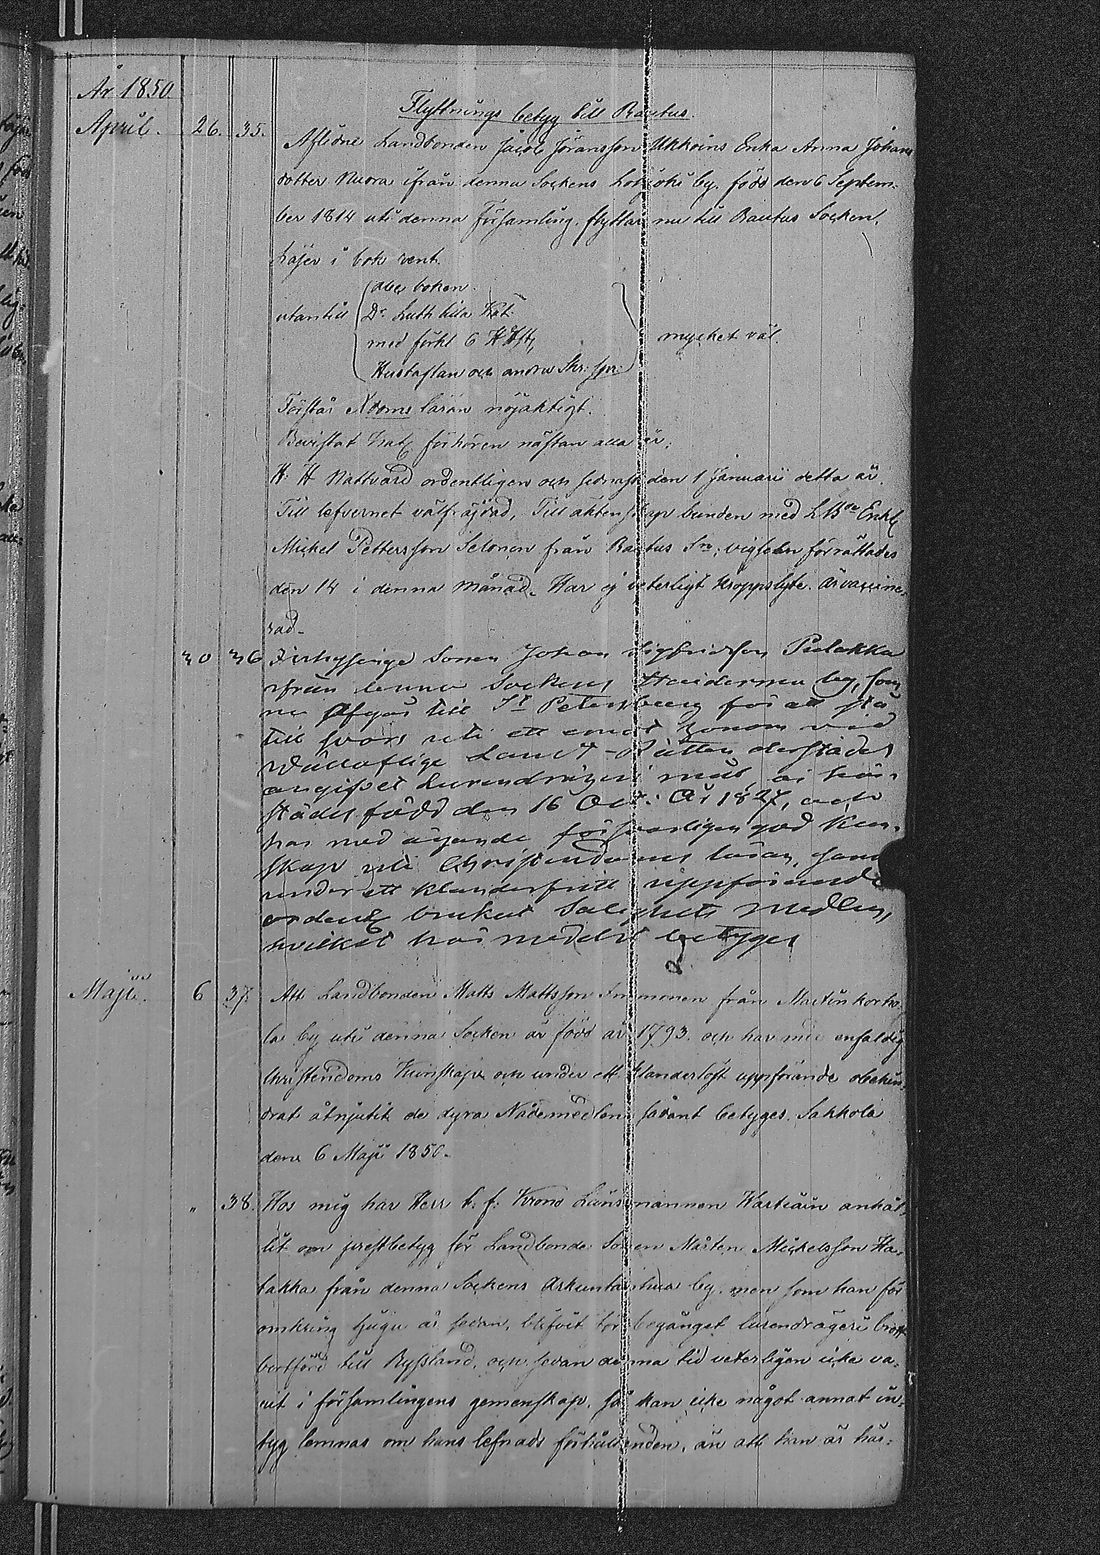 År 1850.
Flyttnings betyg till Rautus.
April. 26. 35.
Aflidne Landbonden Jacob Jöransson Ukkoins Enka Anna Johans
dotter Nuora ifrån denna Sockens by. född den 6 Septem-
ber 1814 uti denna Församling, flyttar nu till Rautus Socken.
Läser i bok rent.
abc boken.
utantill Dr Luth lilla Kat.
med förkl 6 H Hft,
Hustaflan och andra Skr: spr:
mycket väl.
Förstår Xdoms läran nöjaktigt.
Bevistat Kat förhören nästan alla år,
H. H. Nattvard ordentligen och sednast den 1 Januarii detta år.
Till lefvernet välfrägdad, Till äktenskap bunden med L. B. Enkl
Mickel Pettersson Selonen från Rautus Sn, vigseln förrättades
den 14 i denna månad. Har ej veterligt kroppslyte. är vaccine-
rad.
30 36 Inhysinge Sonen Johan Sigfridsson Pulakka
ifrån denna Sockens by, som
nu afgår till St Petersburg för att stå
till svars uti ett emot honom vid
Wällofliga Lands-Rätten derstädes
angifvet Lurendrägeri mål, är här-
städes född den 16 Oct: År 1827, och
har med ägande försvarligen god kun-
skap uti Christendoms läran, samt
under ett klanderfritt uppförande
ordentl brukat Salighets Medlen,
hvilket härmedelst betyges
Maji. 6 37. Att Landbonden Matts Mattsson Immonen från
la by uti denna Socken är född år 1793. och har med enfaldig
Christendoms Kunskap och under ett klanderlöst uppförande obehin-
drat åtnjutit de dyra Nådemedlen sådant betyges. Sakkola
den 6 Maji 1850.
" 38. Hos mig har Herr t. f. Krono Länsmannen anhål-
lit om prestbetyg för Landbonde Sonen Mårten Mickelsson
takka från denna Sockens by. men som han för
omkring tjugu år sedan, blifvit för begånget lurendrägeri brott
bortförd till Ryssland, och sedan denna tid veterligen icke va-
rit i församlingens gemenskap, så kan icke något annat in-
tyg lemnas om hans lefnads förhållanden, än att han är här-